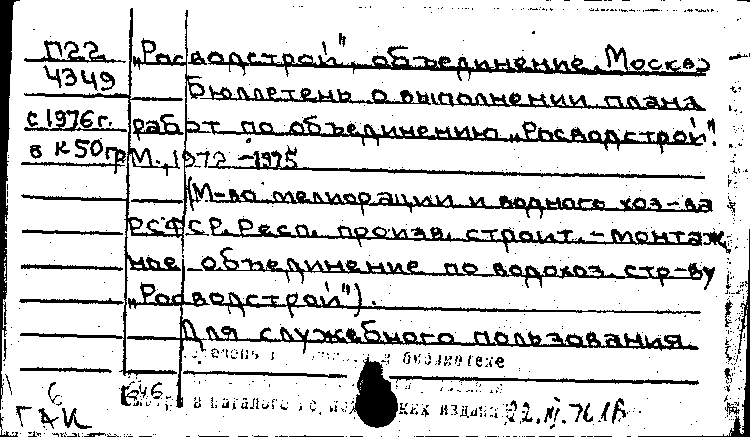 П22
4349
с 1976 г.
в К 50гр
„Росводстрой", объединение. Москва
Бюллетень о выполнении плана
работ по объединению „Росводстрой".
М., 1972 - 1975
(М-во мелиорации и водного хоз-ва
РСФСР. Респ. произв. строит.-монтаж
ное объединение по водохоз. стр-ву
„Росводстрой").
Для служебного пользования.
библиотеке
в каталоге издани
22.XI.76
6
646
ГАК